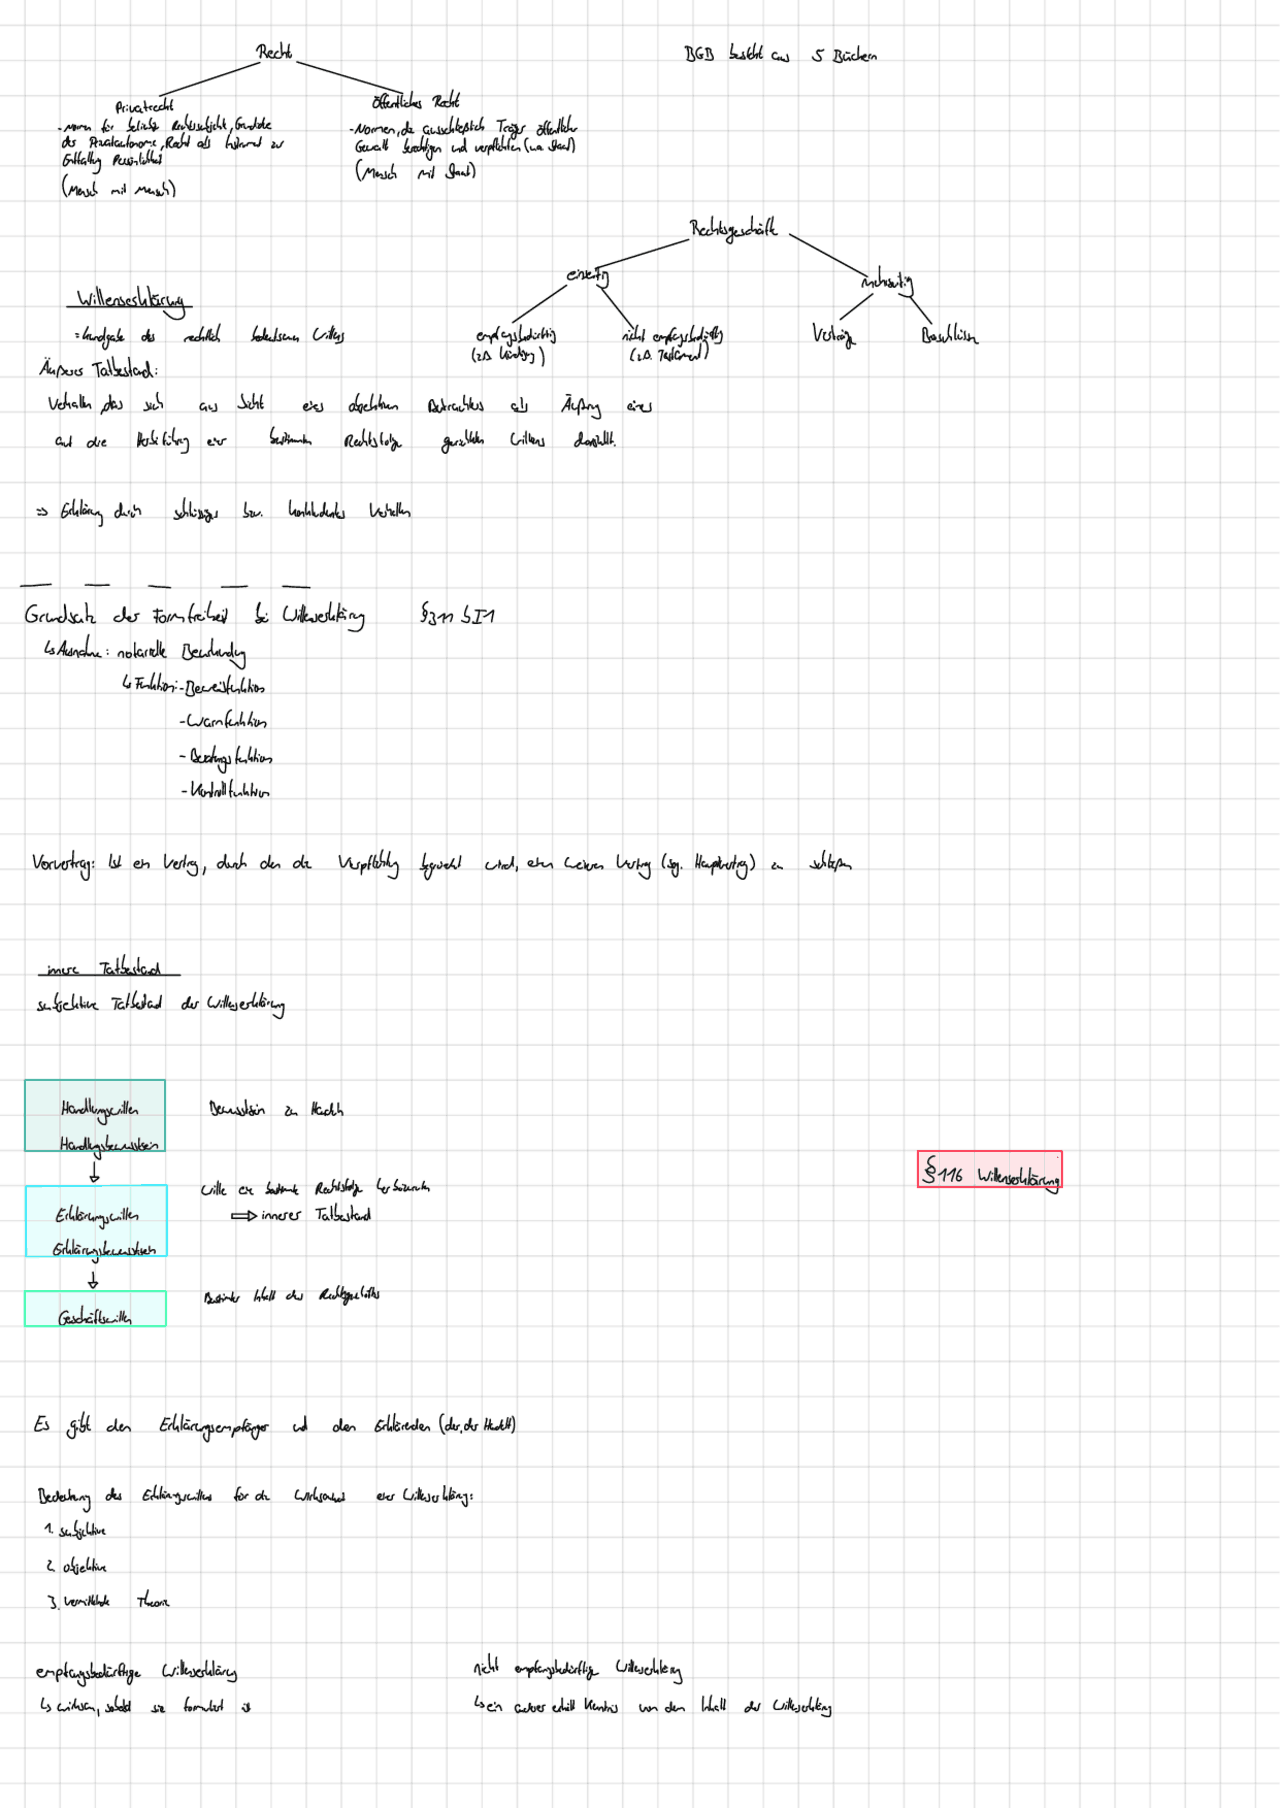 Recht
BGB besteht aus 5 Büchern
Privatrecht
- Normen für beliebige Rechtssubjekte, Grundsatz
der Privatautonomie, Recht als Instrument zur
Entfaltung Persönlichkeit
(Mensch mit Mensch)
öffentliches Recht
- Normen, die ausschließlich Träger öffentlicher
Gewalt berechtigen und verpflichten (von Staat)
(Mensch mit Staat)
Rechtsgeschäfte
einseitig
mehrseitig
empfangsbedürftig
(z.B. Kündigung)
nicht empfangsbedürftig
(z.B. Testament)
Verträge
Beschlüsse
Willenserklärung
= Kundgabe des rechtlich bedeutsamen Willens
Äußeres Tatbestand:
Verhalten, das sich aus Sicht eines objektiven Betrachters als Äußerung eines
auf die Herbeiführung einer bestimmten Rechtsfolge gerichteten Willens darstellt.
⇒ Erklärung durch schlüssiges bzw. konkludentes Verhalten
Grundsatz der Formfreiheit bei Willenserklärung §311 b I 1
↳ Ausnahme: notarielle Beurkundung
↳ Funktion: - Beweisfunktion
- Warnfunktion
- Beratungsfunktion
- Kontrollfunktion
Vorvertrag: Ist ein Vertrag, durch den die Verpflichtung begründet wird, einen weiteren Vertrag (sog. Hauptvertrag) zu schließen
innere Tatbestand
subjektive Tatbestand der Willenserklärung
Handlungswillen
Handlungsbewusstsein
Bewusstsein zu Handeln
§116 Willenserklärung
Wille eine bestimmte Rechtsfolge herbeizurufen
⇒ innerer Tatbestand
Erklärungswillen
Erklärungsbewusstsein
Bestimmter Inhalt des Rechtsgeschäfts
Geschäftswillen
Es gibt den Erklärungsempfänger und den Erklärenden (der, der Handelt)
Bedeutung des Erklärungswillens für die Wirksamkeit einer Willenserklärung:
1. subjektive
2. objektive
3. vermittelnde Theorie
empfangsbedürftige Willenserklärung
↳ wirksam, sobald sie formuliert ist
nicht empfangsbedürftige Willenserklärung
↳ ein anderer erhält Kenntnis von dem Inhalt der Willenserklärung